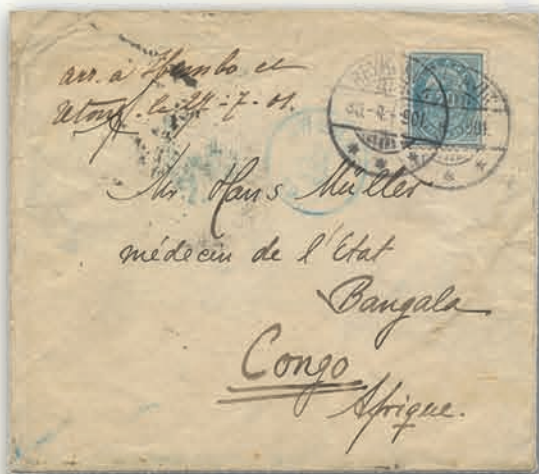 arr. à et
le 27-7-01.
REYKJAVIK
Mr Hans Müller
médecin de l'Etat
Bangala
Congo
Afrique.